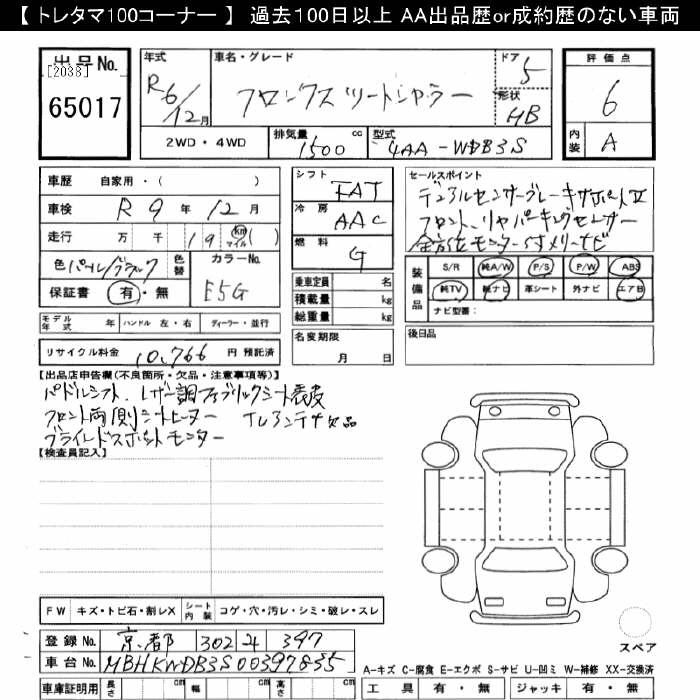 【 トレタマ100コーナー 】 過去100日以上 AA出品歴or成約歴のない車両
出品No.
[2038]
65017
年式
R6/12月
車名・グレード
フロンクス ツートンカラー
ドア
5
形状
HB
評価点
6
内装
A
2WD・4WD
排気量
1500 cc
型式
4AA-WDB3S
車歴 自家用・( )
車検 R 9年 12月
走行 万 千 19 km マイル ( )
色 パール/ブラック 色替 カラーNo.
E5G
保証書 有・無
シフト
FAT
冷房
AAC
燃料
G
乗車定員 名
積載量 kg
総重量 kg
セールスポイント
デュアルセンサーブレーキサポートⅡ
フロント、リヤパーキングセンサー
全方位モニター付メモリーナビ
装備品
S/R 純A/W P/S P/W ABS
純TV 純ナビ 革シート 外ナビ エアB
ナビ型番:
モデル年式 年 ハンドル 左・右 ディーラー・並行
名変期限
月 日
後日品
リサイクル料金 10,766 円 預託済
【出品店申告欄(不良箇所・欠品・注意事項等)】
パドルシフト、レザー調ファブリックシート表皮
フロント両側シートヒーター TVアンテナ欠品
ブラインドスポットモニター
【検査員記入】
FW キズ・トビ石・割レX シート内装 コゲ・穴・汚レ・シミ・破レ・スレ
登録No. 京都 302 ｿ 397
車台No. MBHKWDB3S00397855
スペア
A-キズ C-腐食 E-エクボ S-サビ U-凹ミ W-補修 XX-交換済
車庫証明用 長さ cm 幅 cm 高さ cm
工具 有・無 ジャッキ 有・無